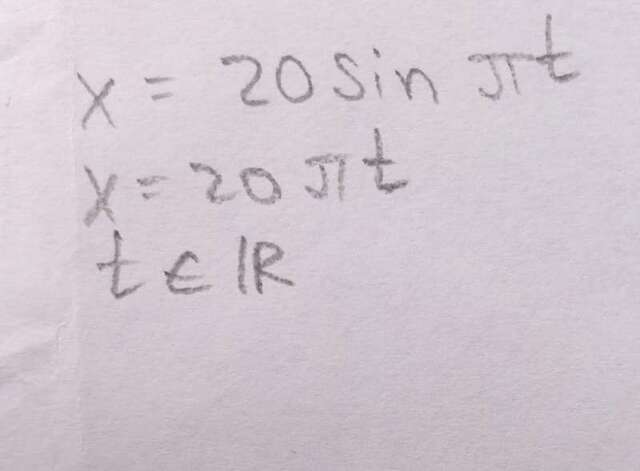 x = 20 sin πt
x = 20 πt
t ∈ ℝ